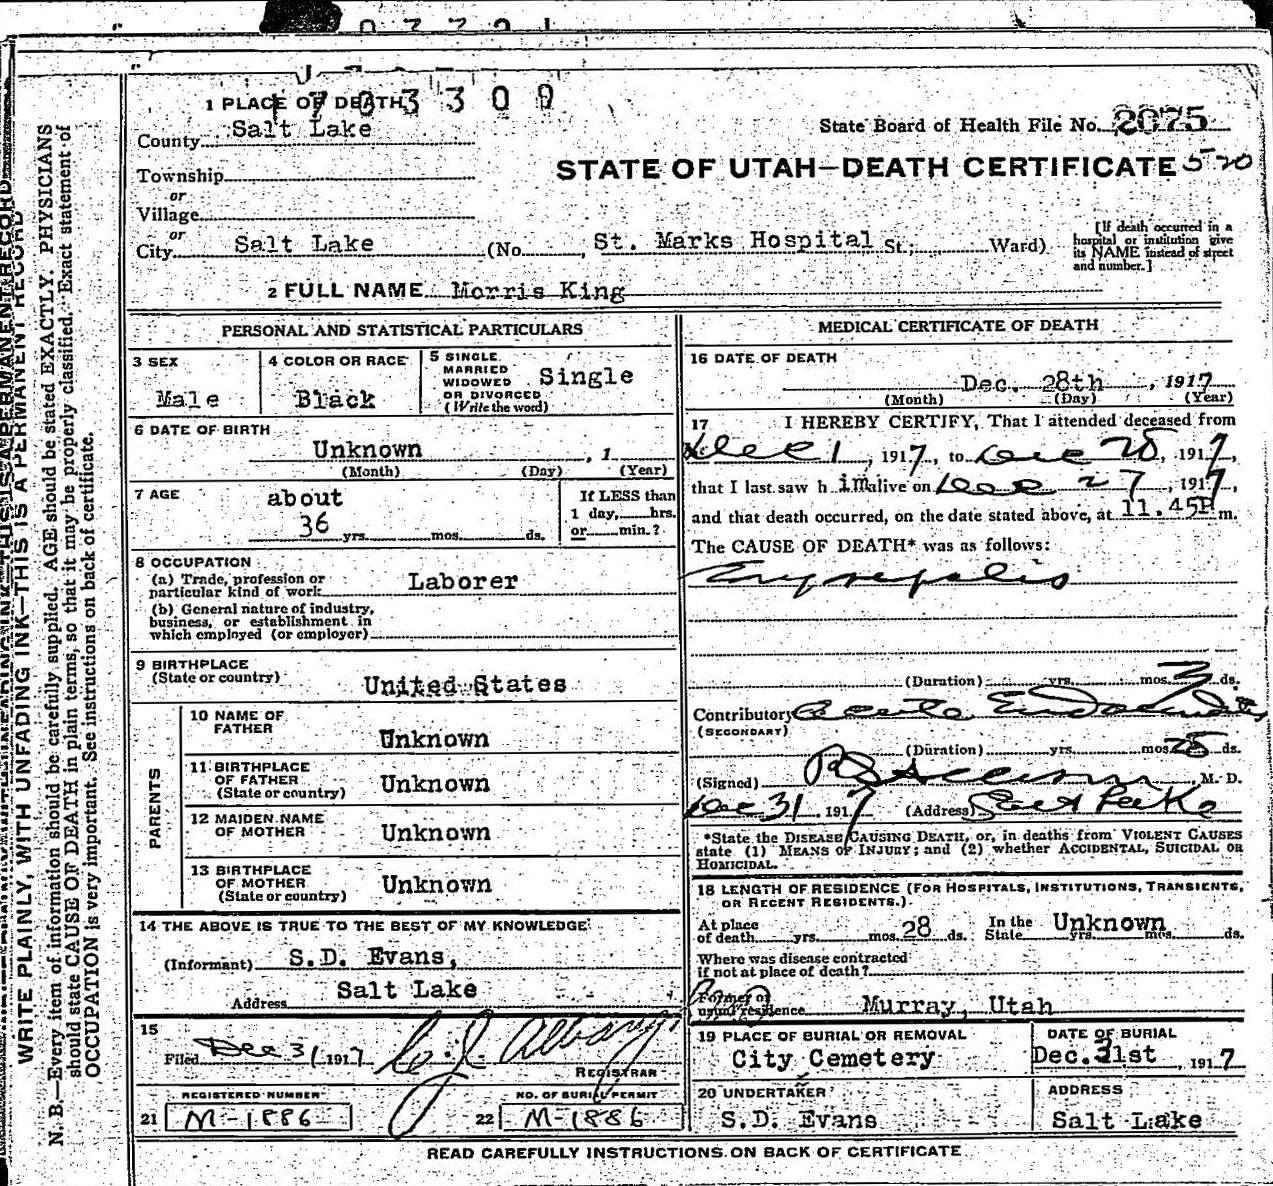 1 PLACE OF DEATH
State Board of Health File No. 2075
County Salt Lake
STATE OF UTAH—DEATH CERTIFICATE 520
Township
or
Village
or
City Salt Lake (No. , St. Marks Hospital St.; Ward)
[If death occurred in a
hospital or institution give
its NAME instead of street
and number.]
2 FULL NAME Morris King
PERSONAL AND STATISTICAL PARTICULARS
3 SEX
Male
4 COLOR OR RACE
Black
5 SINGLE
MARRIED
WIDOWED
OR DIVORCED
(Write the word)
Single
6 DATE OF BIRTH
Unknown , 1
(Month) (Day) (Year)
7 AGE
about
36 yrs. mos. ds.
If LESS than
1 day, hrs.
or min.?
8 OCCUPATION
(a) Trade, profession or
particular kind of work Laborer
(b) General nature of industry,
business, or establishment in
which employed (or employer)
9 BIRTHPLACE
(State or country) United States
PARENTS
10 NAME OF
FATHER Unknown
11 BIRTHPLACE
OF FATHER
(State or country) Unknown
12 MAIDEN NAME
OF MOTHER Unknown
13 BIRTHPLACE
OF MOTHER
(State or country) Unknown
14 THE ABOVE IS TRUE TO THE BEST OF MY KNOWLEDGE
(Informant) S.D. Evans,
Address Salt Lake
15
Filed Dec 31 1917
REGISTRAR
REGISTERED NUMBER
21 M-1886
NO. OF BURIAL PERMIT
22 M-1886
MEDICAL CERTIFICATE OF DEATH
16 DATE OF DEATH
Dec. 28th , 1917
(Month) (Day) (Year)
17 I HEREBY CERTIFY, That I attended deceased from
Dec 1 , 1917, to Dec 28, 1917,
that I last saw h im alive on Dec 27, 1917,
and that death occurred, on the date stated above, at 11.45P m.
The CAUSE OF DEATH* was as follows:
Erysipelis
(Duration) yrs. mos. 3 ds.
Contributory Acute Endocarditis
(SECONDARY)
(Duration) yrs. mos. 25 ds.
(Signed) M. D.
Dec 31 1917 (Address) Salt Lake
*State the DISEASE CAUSING DEATH, or, in deaths from VIOLENT CAUSES
state (1) MEANS OF INJURY; and (2) whether ACCIDENTAL, SUICIDAL OR
HOMICIDAL.
18 LENGTH OF RESIDENCE (FOR HOSPITALS, INSTITUTIONS, TRANSIENTS,
OR RECENT RESIDENTS.)
At place
of death yrs. mos. 28 ds.
In the
State Unknown yrs. mos. ds.
Where was disease contracted
if not at place of death?
Former or
usual residence Murray, Utah
19 PLACE OF BURIAL OR REMOVAL
City Cemetery
DATE OF BURIAL
Dec. 31st , 1917
20 UNDERTAKER
S.D. Evans
ADDRESS
Salt Lake
READ CAREFULLY INSTRUCTIONS ON BACK OF CERTIFICATE
WRITE PLAINLY, WITH UNFADING INK—THIS IS A PERMANENT RECORD
N. B.—Every item of information should be carefully supplied. AGE should be stated EXACTLY. PHYSICIANS
should state CAUSE OF DEATH in plain terms, so that it may be properly classified. Exact statement of
OCCUPATION is very important. See instructions on back of certificate.